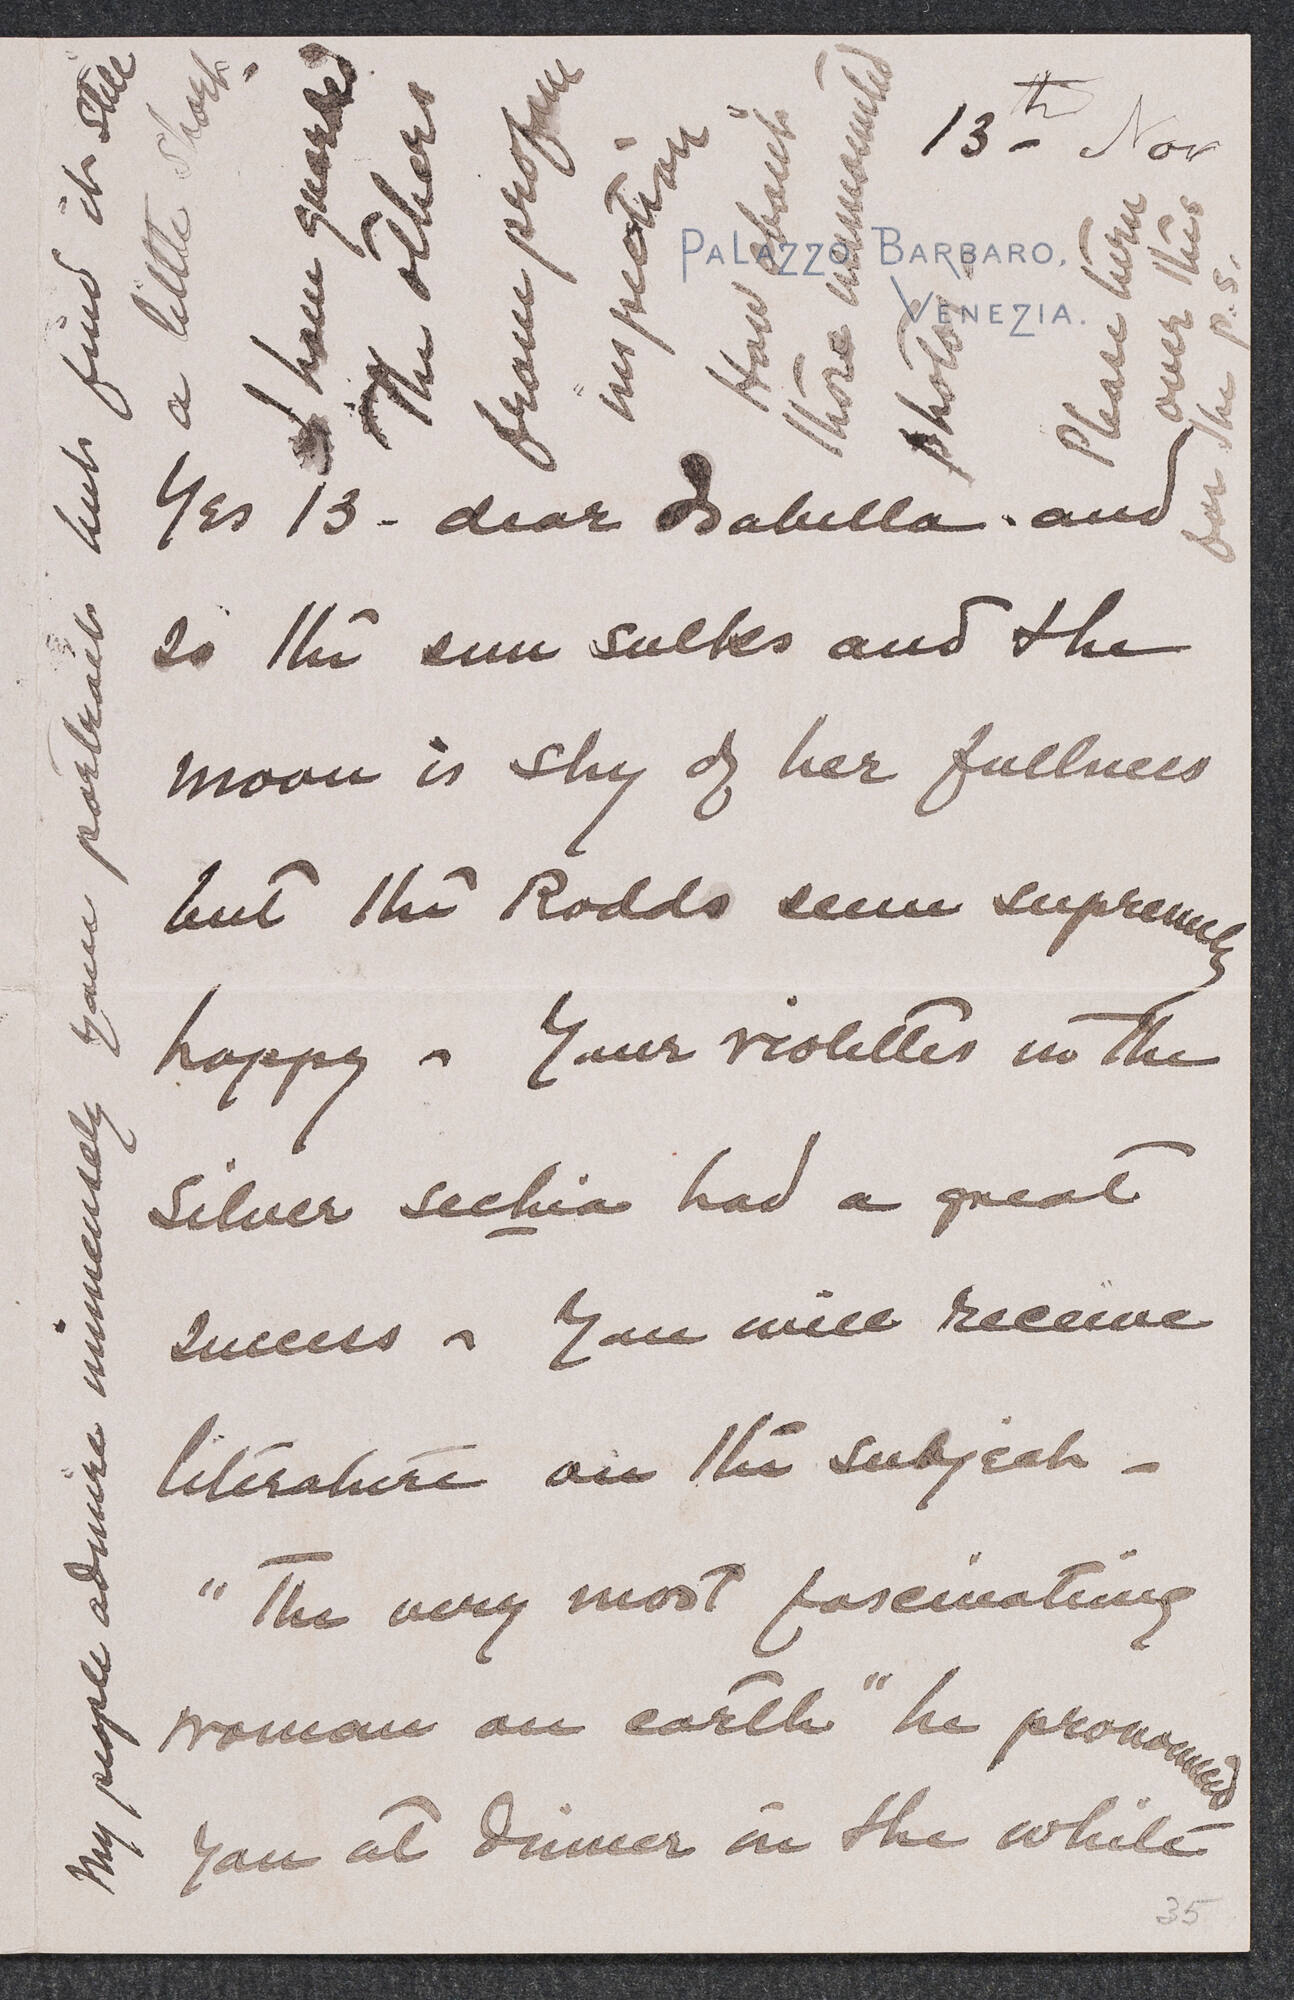 13th Nov
PALAZZO BARBARO.
VENEZIA.
Yes 13 - dear Isabella - and
so the sun sulks and the
moon is shy of her fullness
but the Rodds seem supremely
happy - Your violettes in the
silver sechia had a great
success - You will receive
literature on the subject -
"The very most fascinating
woman on earth" he pronounced
you at dinner in the white
My people admire immensely your portrait but find it "still
a little short".
I have guarded
the others
from profane
"inspection".
How about
those unmounted
photos.
Please turn
over this
for the p.s.
35